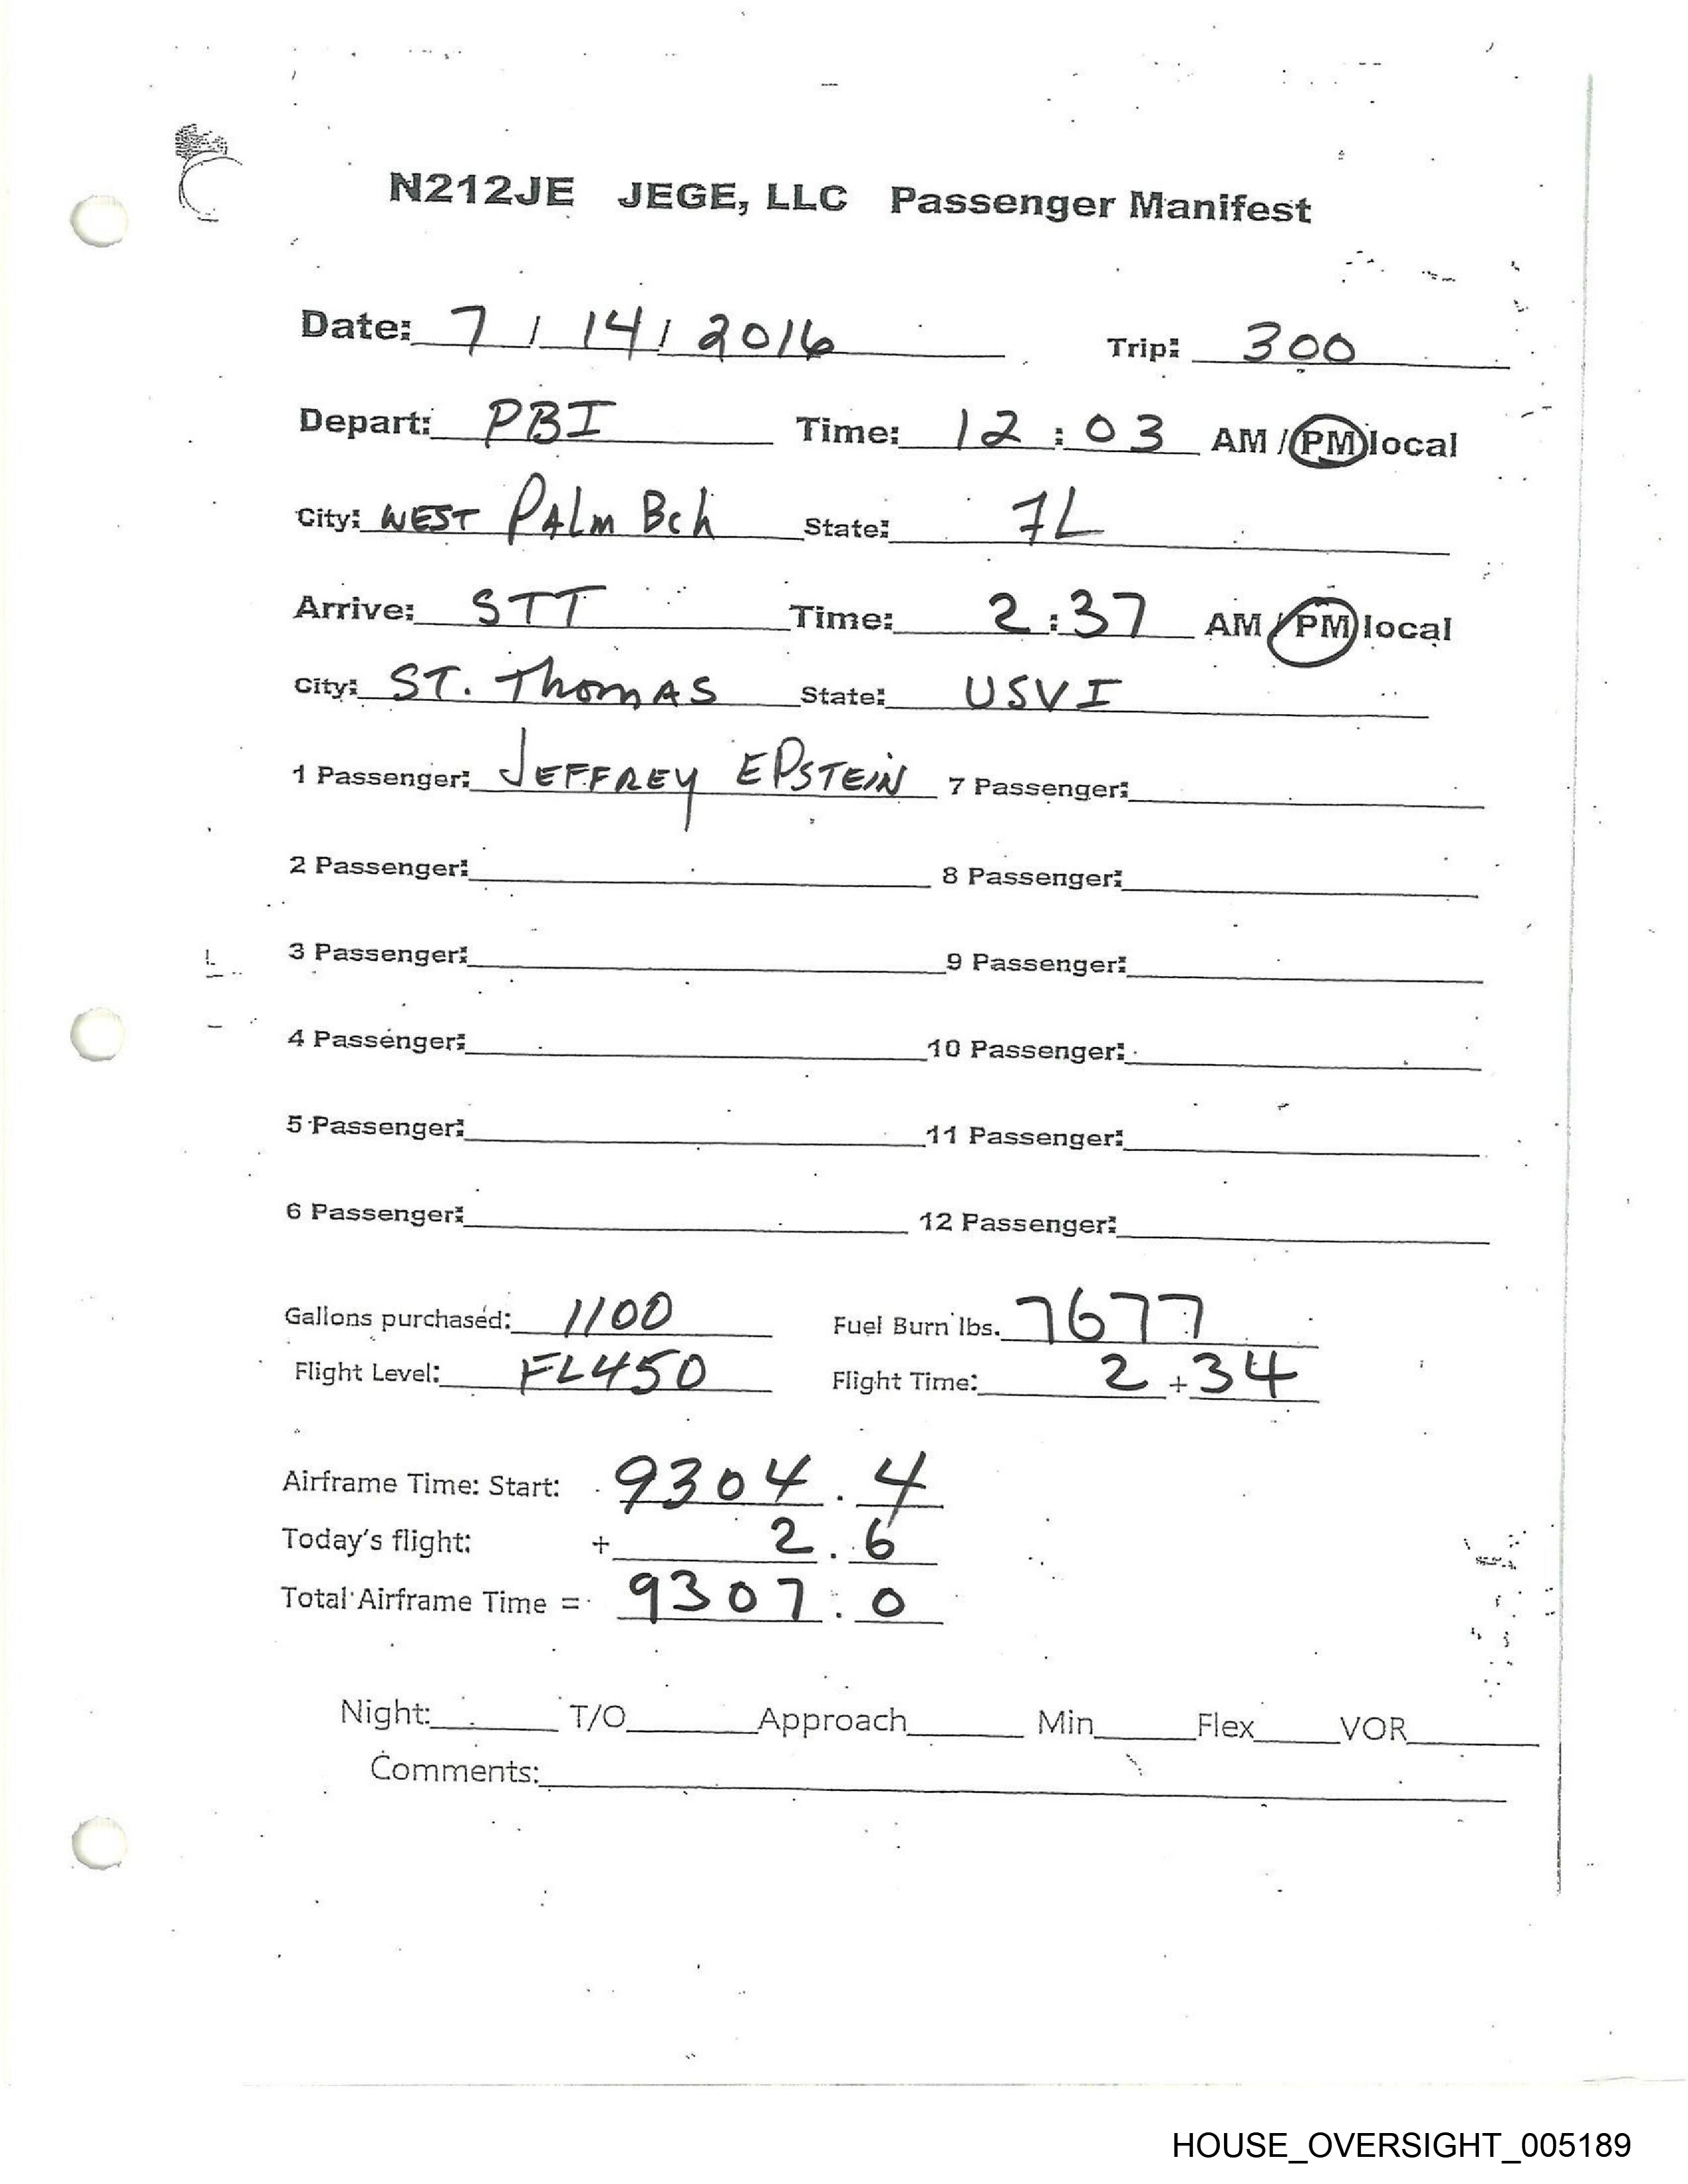 N212JE JEGE, LLC Passenger Manifest
Date: 7 / 14 / 2016 Trip: 300
Depart: PBI Time: 12:03 AM / PM local
City: WEST PALM Bch State: FL
Arrive: STT Time: 2:37 AM / PM local
City: ST. Thomas State: USVI
1 Passenger: JEFFREY EPSTEIN 7 Passenger:
2 Passenger: 8 Passenger:
3 Passenger: 9 Passenger:
4 Passenger: 10 Passenger:
5 Passenger: 11 Passenger:
6 Passenger: 12 Passenger:
Gallons purchased: 1100 Fuel Burn lbs. 7677
Flight Level: FL450 Flight Time: 2 + 34
Airframe Time: Start: 9304.4
Today's flight: + 2.6
Total Airframe Time = 9307.0
Night: T/O Approach Min Flex VOR
Comments:
HOUSE_OVERSIGHT_005189